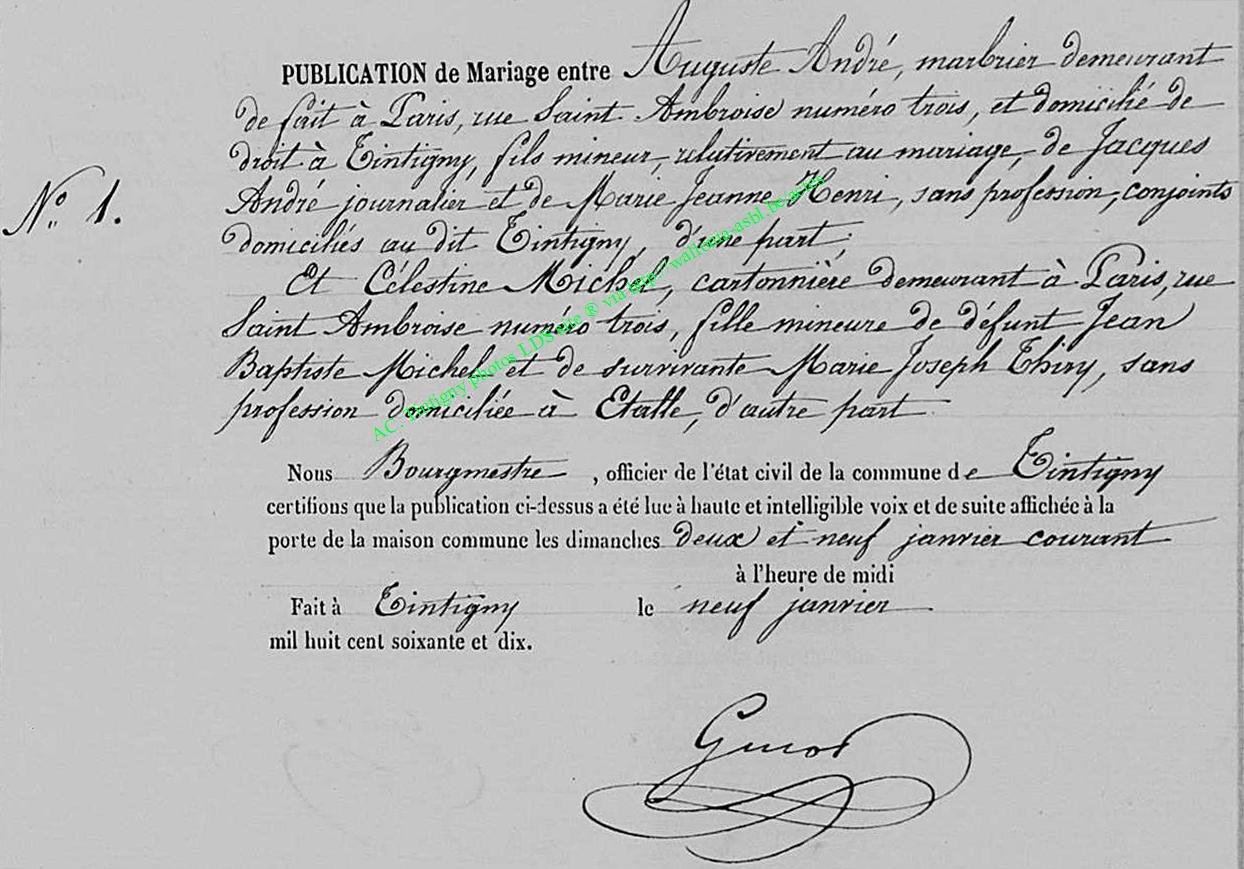 PUBLICATION de Mariage entre Auguste André, marbrier demeurant
de fait à Paris, rue Saint Ambroise numéro trois, et domicilié de
droit à Tintigny, fils mineur, relativement au mariage, de Jacques
N° 1.
André journalier et de Marie Jeanne Henri, sans profession, conjoints
domiciliés au dit Tintigny, d'une part;
Et Célestine Michel, cartonnière demeurant à Paris, rue
Saint Ambroise numéro trois, fille mineure de défunt Jean
Baptiste Michel et de survivante Marie Joseph Thiry, sans
profession domiciliée à Etalle, d'autre part
Nous Bourgmestre, officier de l'état civil de la commune de Tintigny
certifions que la publication ci-dessus a été lue à haute et intelligible voix et de suite affichée à la
porte de la maison commune les dimanches deux et neuf janvier courant
à l'heure de midi
Fait à Tintigny le neuf janvier
mil huit cent soixante et dix.
AC. Tintigny photos LDS site ® via http://wallonia-asbl.be